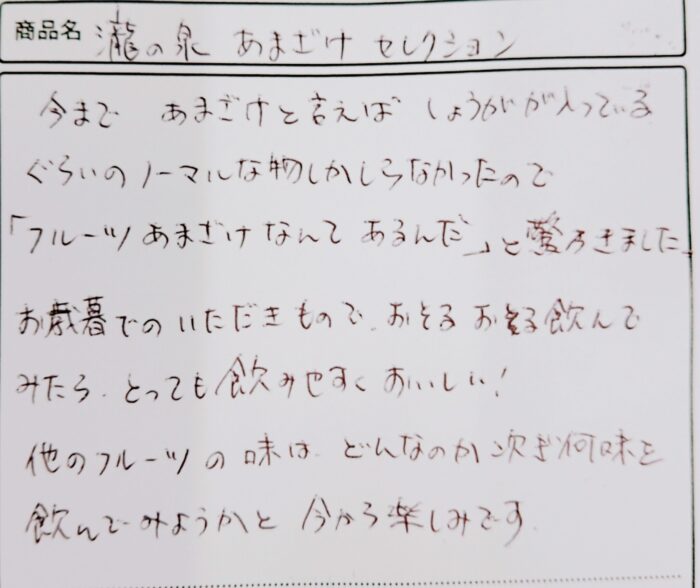 商品名 瀧の泉 あまざけ セレクション
今まで あまざけと言えば しょうがが入っている
ぐらいのノーマルな物しかしらなかったので
「フルーツあまざけなんて あるんだ」と驚ろきました。
お歳暮でのいただきもので、おそるおそる飲んで
みたら、とっても飲みやすくおいしい!
他のフルーツの味は、どんなのか次ぎ何味を
飲んでみようかと 今から楽しみです。